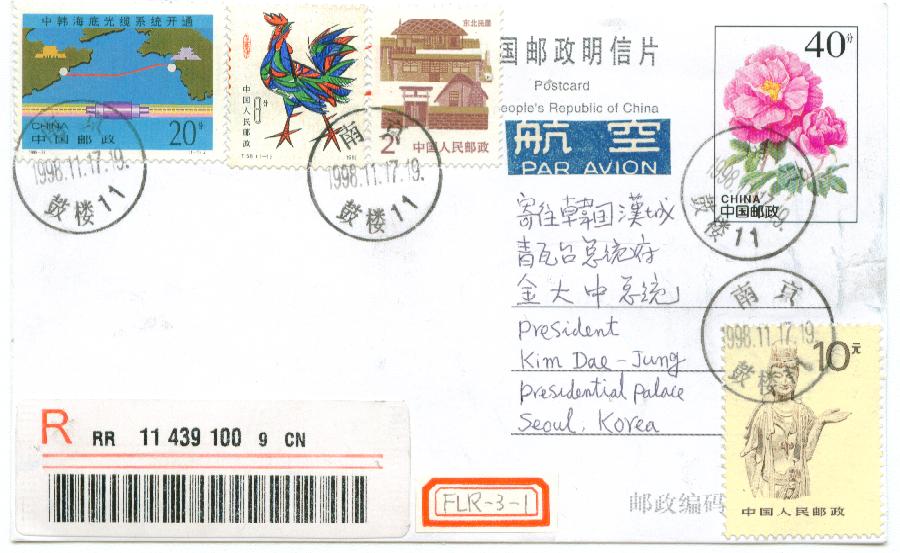 中韩海底光缆系统开通
CHINA
中国邮政
20分
中国人民邮政
8分
T.58.(1-1)
东北民居
2分
中国人民邮政
国邮政明信片
Postcard
eople's Republic of China
航空
PAR AVION
40分
CHINA
中国邮政
1998.11.17.19.
鼓楼11
南京
1998.11.17.19.
鼓楼11
鼓楼11
南京
1998.11.17.19.
鼓楼
寄往韓国漢城
青瓦台总统府
金大中总统
President
Kim Dae-Jung
presidential palace
Seoul, Korea
10元
中国人民邮政
R RR 11 439 100 9 CN
FLR-3-1
邮政编码